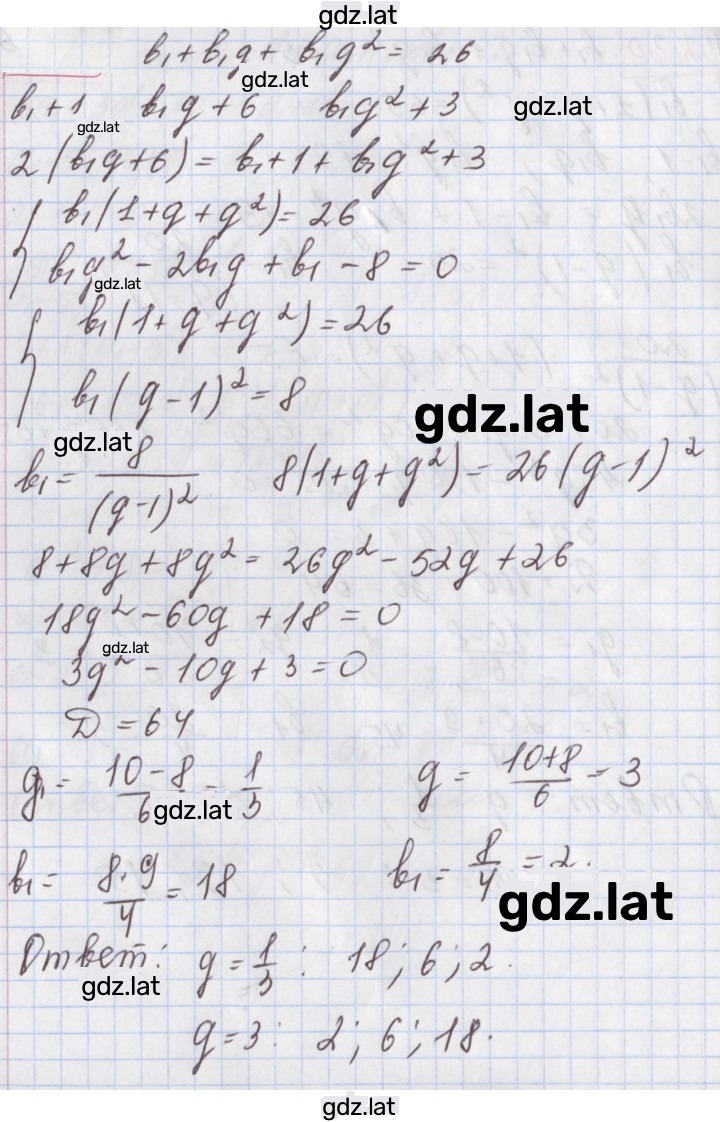 gdz.lat
b₁ + b₁g + b₁g² = 26
gdz.lat
b₁ + 1 b₁g + 6 b₁g² + 3
gdz.lat
gdz.lat
2(b₁g + 6) = b₁ + 1 + b₁g² + 3
b₁(1 + g + g²) = 26
b₁g² - 2b₁g + b₁ - 8 = 0
gdz.lat
b₁(1 + g + g²) = 26
b₁(g - 1)² = 8
gdz.lat
gdz.lat
b₁ = 8/(g-1)² 8(1 + g + g²) = 26(g - 1)²
8 + 8g + 8g² = 26g² - 52g + 26
18g² - 60g + 18 = 0
gdz.lat
3g² - 10g + 3 = 0
D = 64
g₁ = (10-8)/6 = 1/3 g = (10+8)/6 = 3
gdz.lat
b₁ = (8·9)/4 = 18 b₁ = 8/4 = 2.
gdz.lat
Ответ: g = 1/3 : 18; 6; 2.
gdz.lat
g = 3 : 2; 6; 18.
gdz.lat